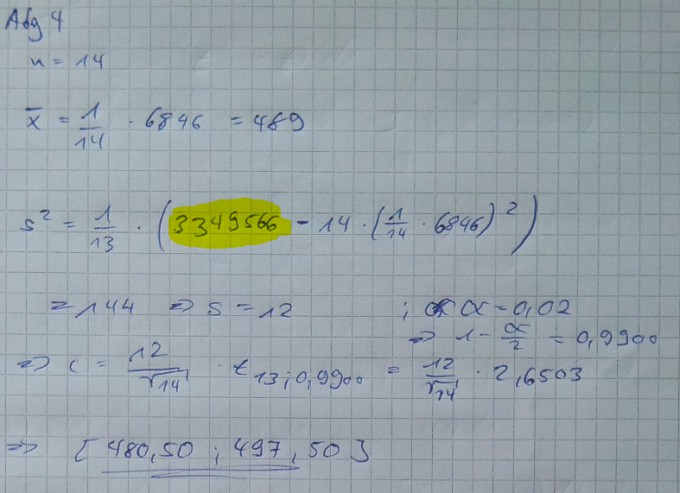 Afg 4
n = 14
x̄ = 1/14 · 6846 = 489
s² = 1/13 · (3349566 - 14 · (1/14 · 6846)²)
= 144 ⇒ s = 12 ; α = 0,02
⇒ 1 - α/2 = 0,9900
⇒ c = 12/√14 · t13;0,9900 = 12/√14 · 2,6503
⇒ [480,50 ; 497,50]